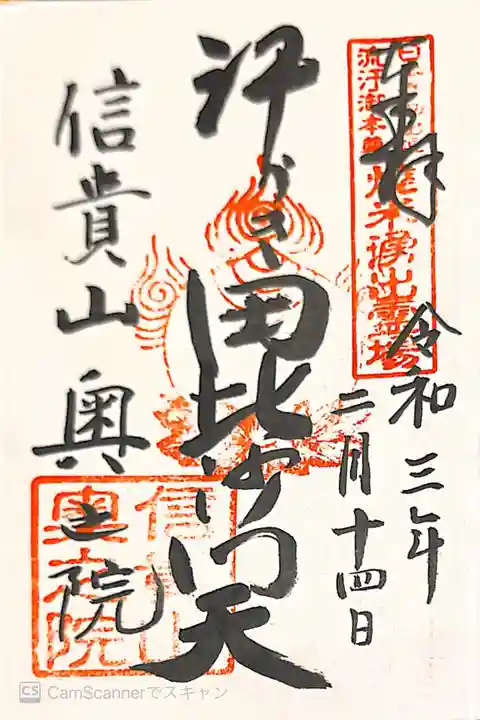 奉拝
令和三年
二月十四日
汗かき
毘沙门天
信貴山奥之院
焼米湧出霊場
信貴山
奥之院
CS CamScannerでスキャン